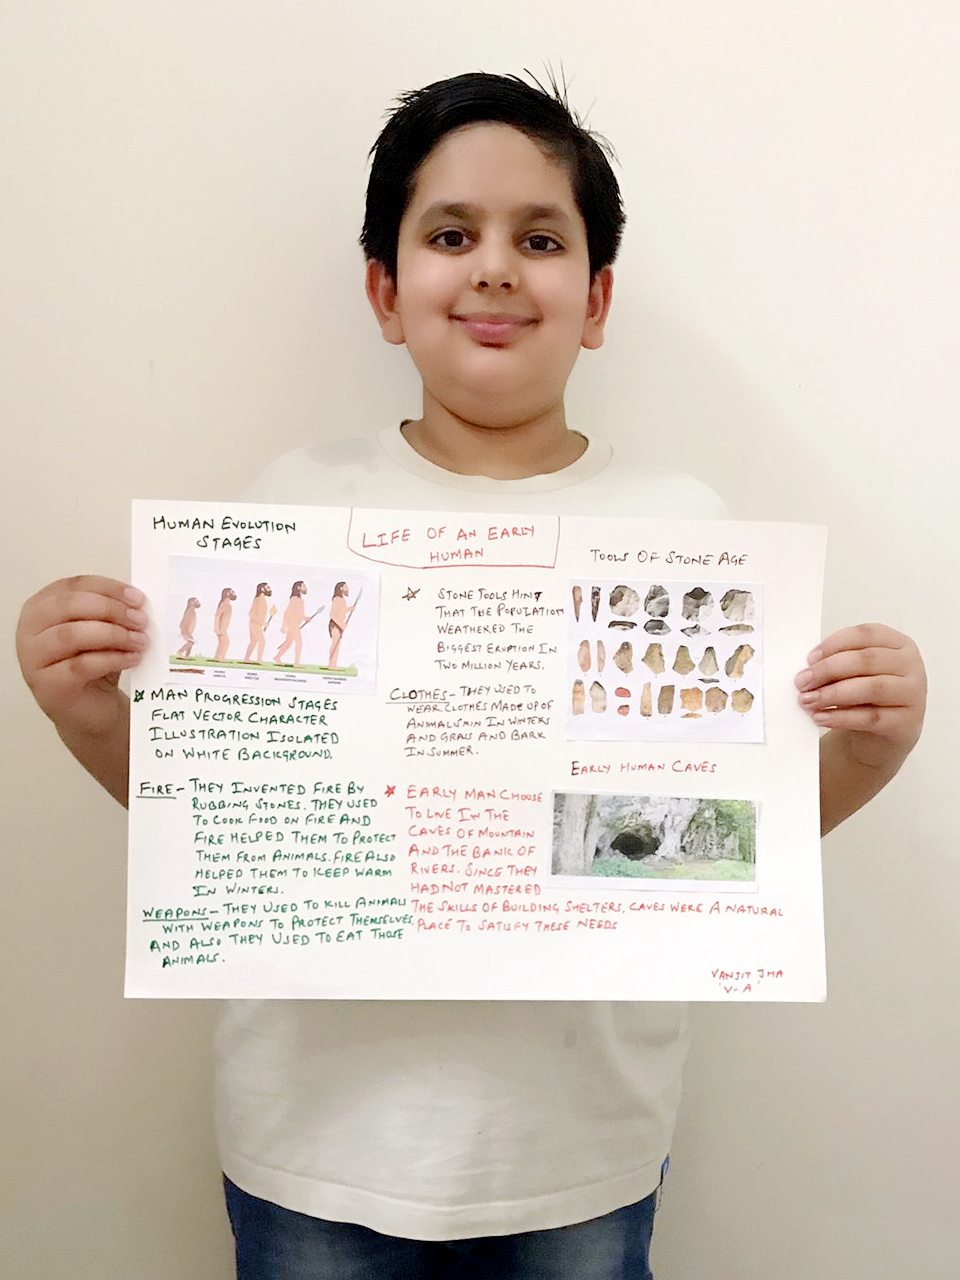 HUMAN EVOLUTION
STAGES
LIFE OF AN EARLY
HUMAN
TOOLS OF STONE AGE
STONE TOOLS HINT
THAT THE POPULATION
WEATHERED THE
BIGGEST ERUPTION IN
TWO MILLION YEARS.
MAN PROGRESSION STAGES
FLAT VECTOR CHARACTER
ILLUSTRATION ISOLATED
ON WHITE BACKGROUND.
CLOTHES - THEY USED TO
WEAR CLOTHES MADE UP OF
ANIMAL SKIN IN WINTERS
AND GRASS AND BARK
IN SUMMER.
EARLY HUMAN CAVES
FIRE - THEY INVENTED FIRE BY
RUBBING STONES. THEY USED
TO COOK FOOD ON FIRE AND
FIRE HELPED THEM TO PROTECT
THEM FROM ANIMALS. FIRE ALSO
HELPED THEM TO KEEP WARM
IN WINTERS.
WEAPONS - THEY USED TO KILL ANIMALS
WITH WEAPONS TO PROTECT THEMSELVES
AND ALSO THEY USED TO EAT THOSE
ANIMALS.
EARLY MAN CHOOSE
TO LIVE IN THE
CAVES OF MOUNTAIN
AND THE BANK OF
RIVERS. SINCE THEY
HAD NOT MASTERED
THE SKILLS OF BUILDING SHELTERS, CAVES WERE A NATURAL
PLACE TO SATISFY THESE NEEDS
VANJIT JHA
'V-A'